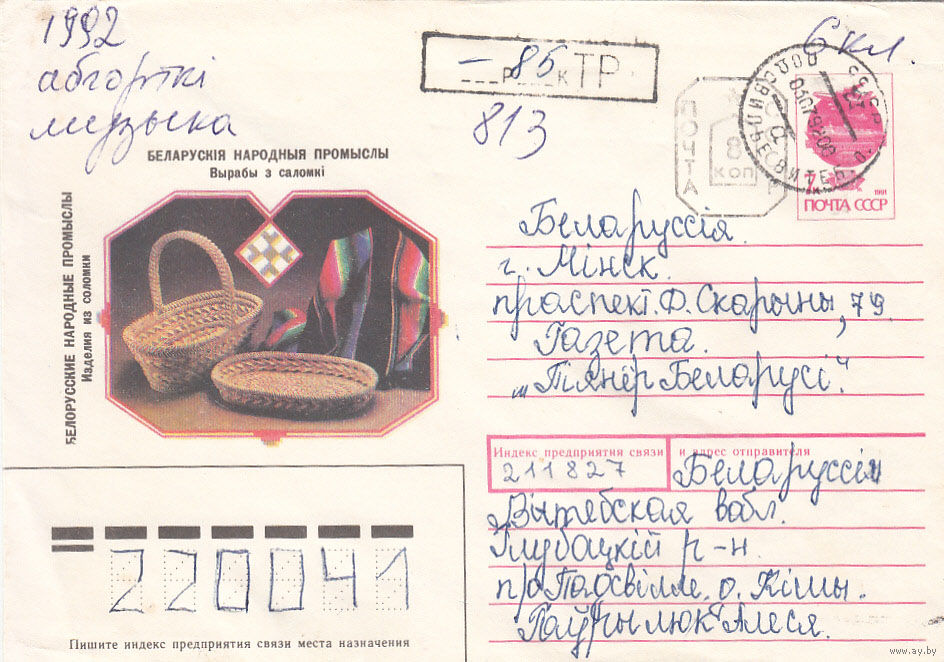 1992
абгорткі
музыка
– 85
р к ТР
813
6 кл.
ПОЧТА
8
КОП
7к
1991
ПОЧТА СССР
БЕЛАРУСКІЯ НАРОДНЫЯ ПРОМЫСЛЫ
Вырабы з саломкі
БЕЛОРУССКИЕ НАРОДНЫЕ ПРОМЫСЛЫ
Изделия из соломки
Беларуссія.
г. Мінск.
праспект. Ф. Скарыны, 79
Газета.
"Піянер Беларусі".
Индекс предприятия связи и адрес отправителя
211827
Беларуссія
Вытебская вобл.
Глубацкій р-н.
п/о Падсвілле. о. Кімы.
Гаўрылюк Алеся.
220041
Пишите индекс предприятия связи места назначения
www.ay.by